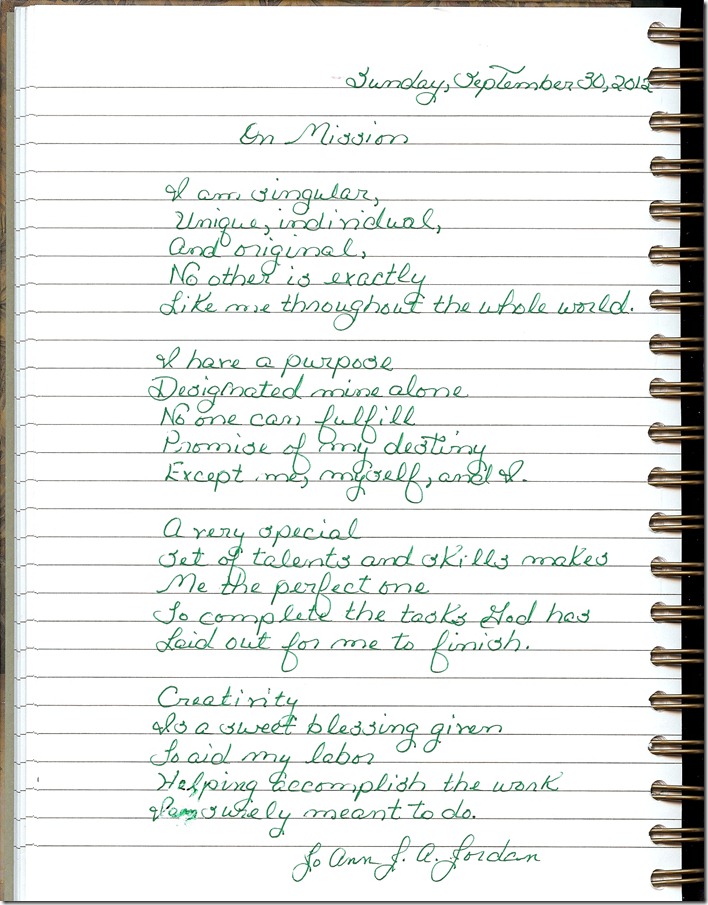 Sunday, September 30, 2012
On Mission
I am singular,
Unique, individual,
And original,
No other is exactly
Like me throughout the whole world.
I have a purpose
Designated mine alone
No one can fulfill
Promise of my destiny
Except me, myself, and I.
A very special
Set of talents and skills makes
Me the perfect one
To complete the tasks God has
Laid out for me to finish.
Creativity
Is a sweet blessing given
To aid my labor
Helping accomplish the work
I am surely meant to do.
Jo Ann J. A. Jordan